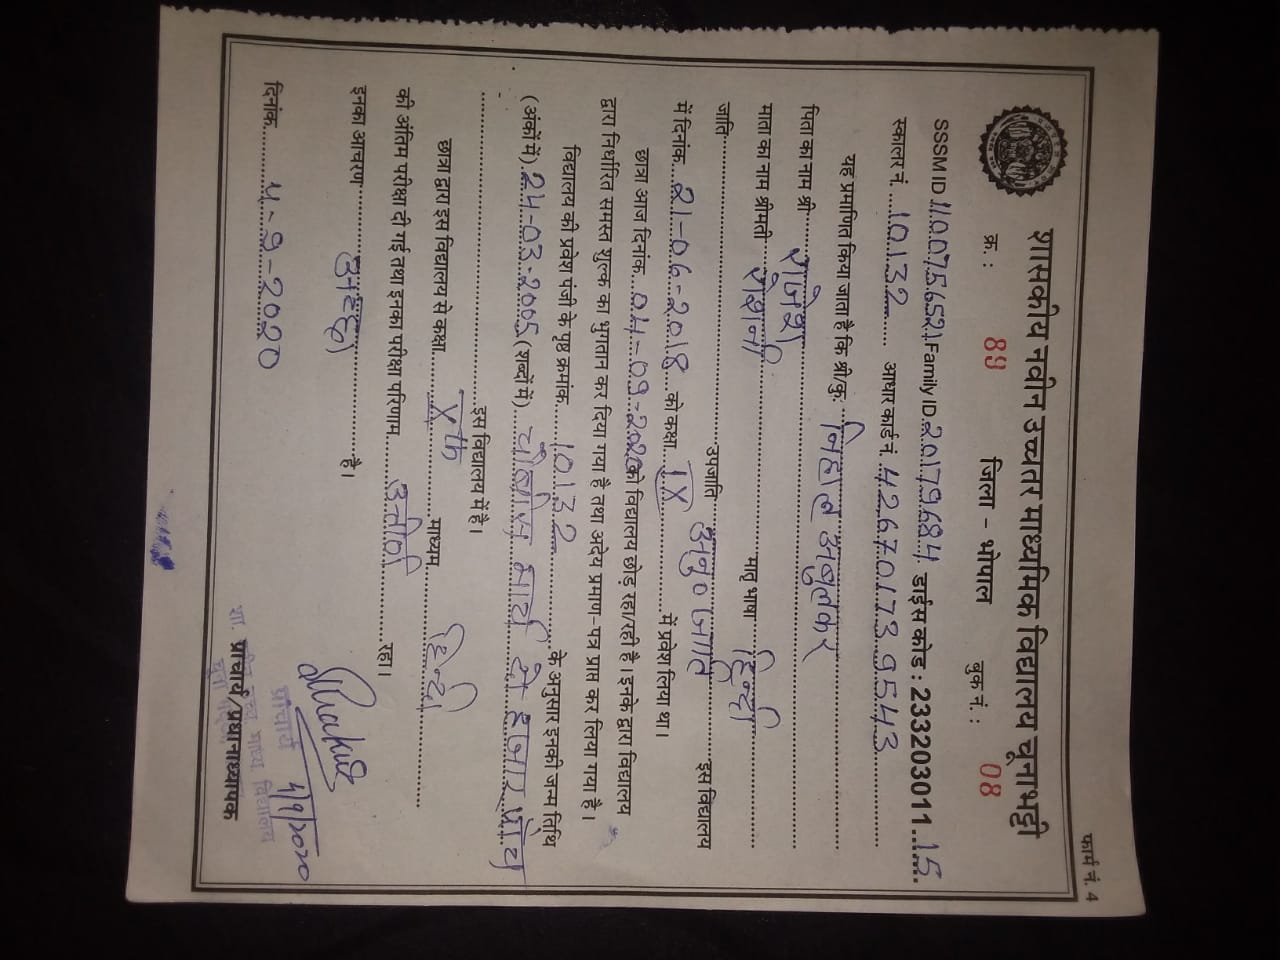 फार्म नं. 4
शासकीय नवीन उच्चतर माध्यमिक विद्यालय चूनाभट्टी
क्र. : 89 जिला - भोपाल बुक नं. : 08
SSSM ID 110075652 Family ID 20179684 डाईस कोड : 233203011 15
स्कालर नं. 10132 आधार कार्ड नं. 426701739543
यह प्रमाणित किया जाता है कि श्री/कु. निहाल अबुलकर
पिता का नाम श्री राजेश
माता का नाम श्रीमती रोशनी मातृ भाषा हिन्दी
जाति उपजाति अनु० जाति इस विद्यालय
में दिनांक 21-06-2018 को कक्षा IX में प्रवेश लिया था।
छात्रा आज दिनांक 04-09-2020 को विद्यालय छोड़ रहा/रही है। इनके द्वारा विद्यालय
द्वारा निर्धारित समस्त शुल्क का भुगतान कर दिया गया है तथा अदेय प्रमाण-पत्र प्राप्त कर लिया गया है।
विद्यालय की प्रवेश पंजी के पृष्ठ क्रमांक 10132 के अनुसार इनकी जन्म तिथि
(अंकों में) 24-03-2005 (शब्दों में) चौबीस मार्च दो हजार पाँच
इस विद्यालय में है।
छात्रा द्वारा इस विद्यालय से कक्षा Xth माध्यम हिन्दी
की अंतिम परीक्षा दी गई तथा इनका परीक्षा परिणाम उत्तीर्ण रहा।
इनका आचरण अच्छा है।
दिनांक 4-9-2020
4/9/2020
प्राचार्य
प्राचार्य/प्रधानाध्यापक